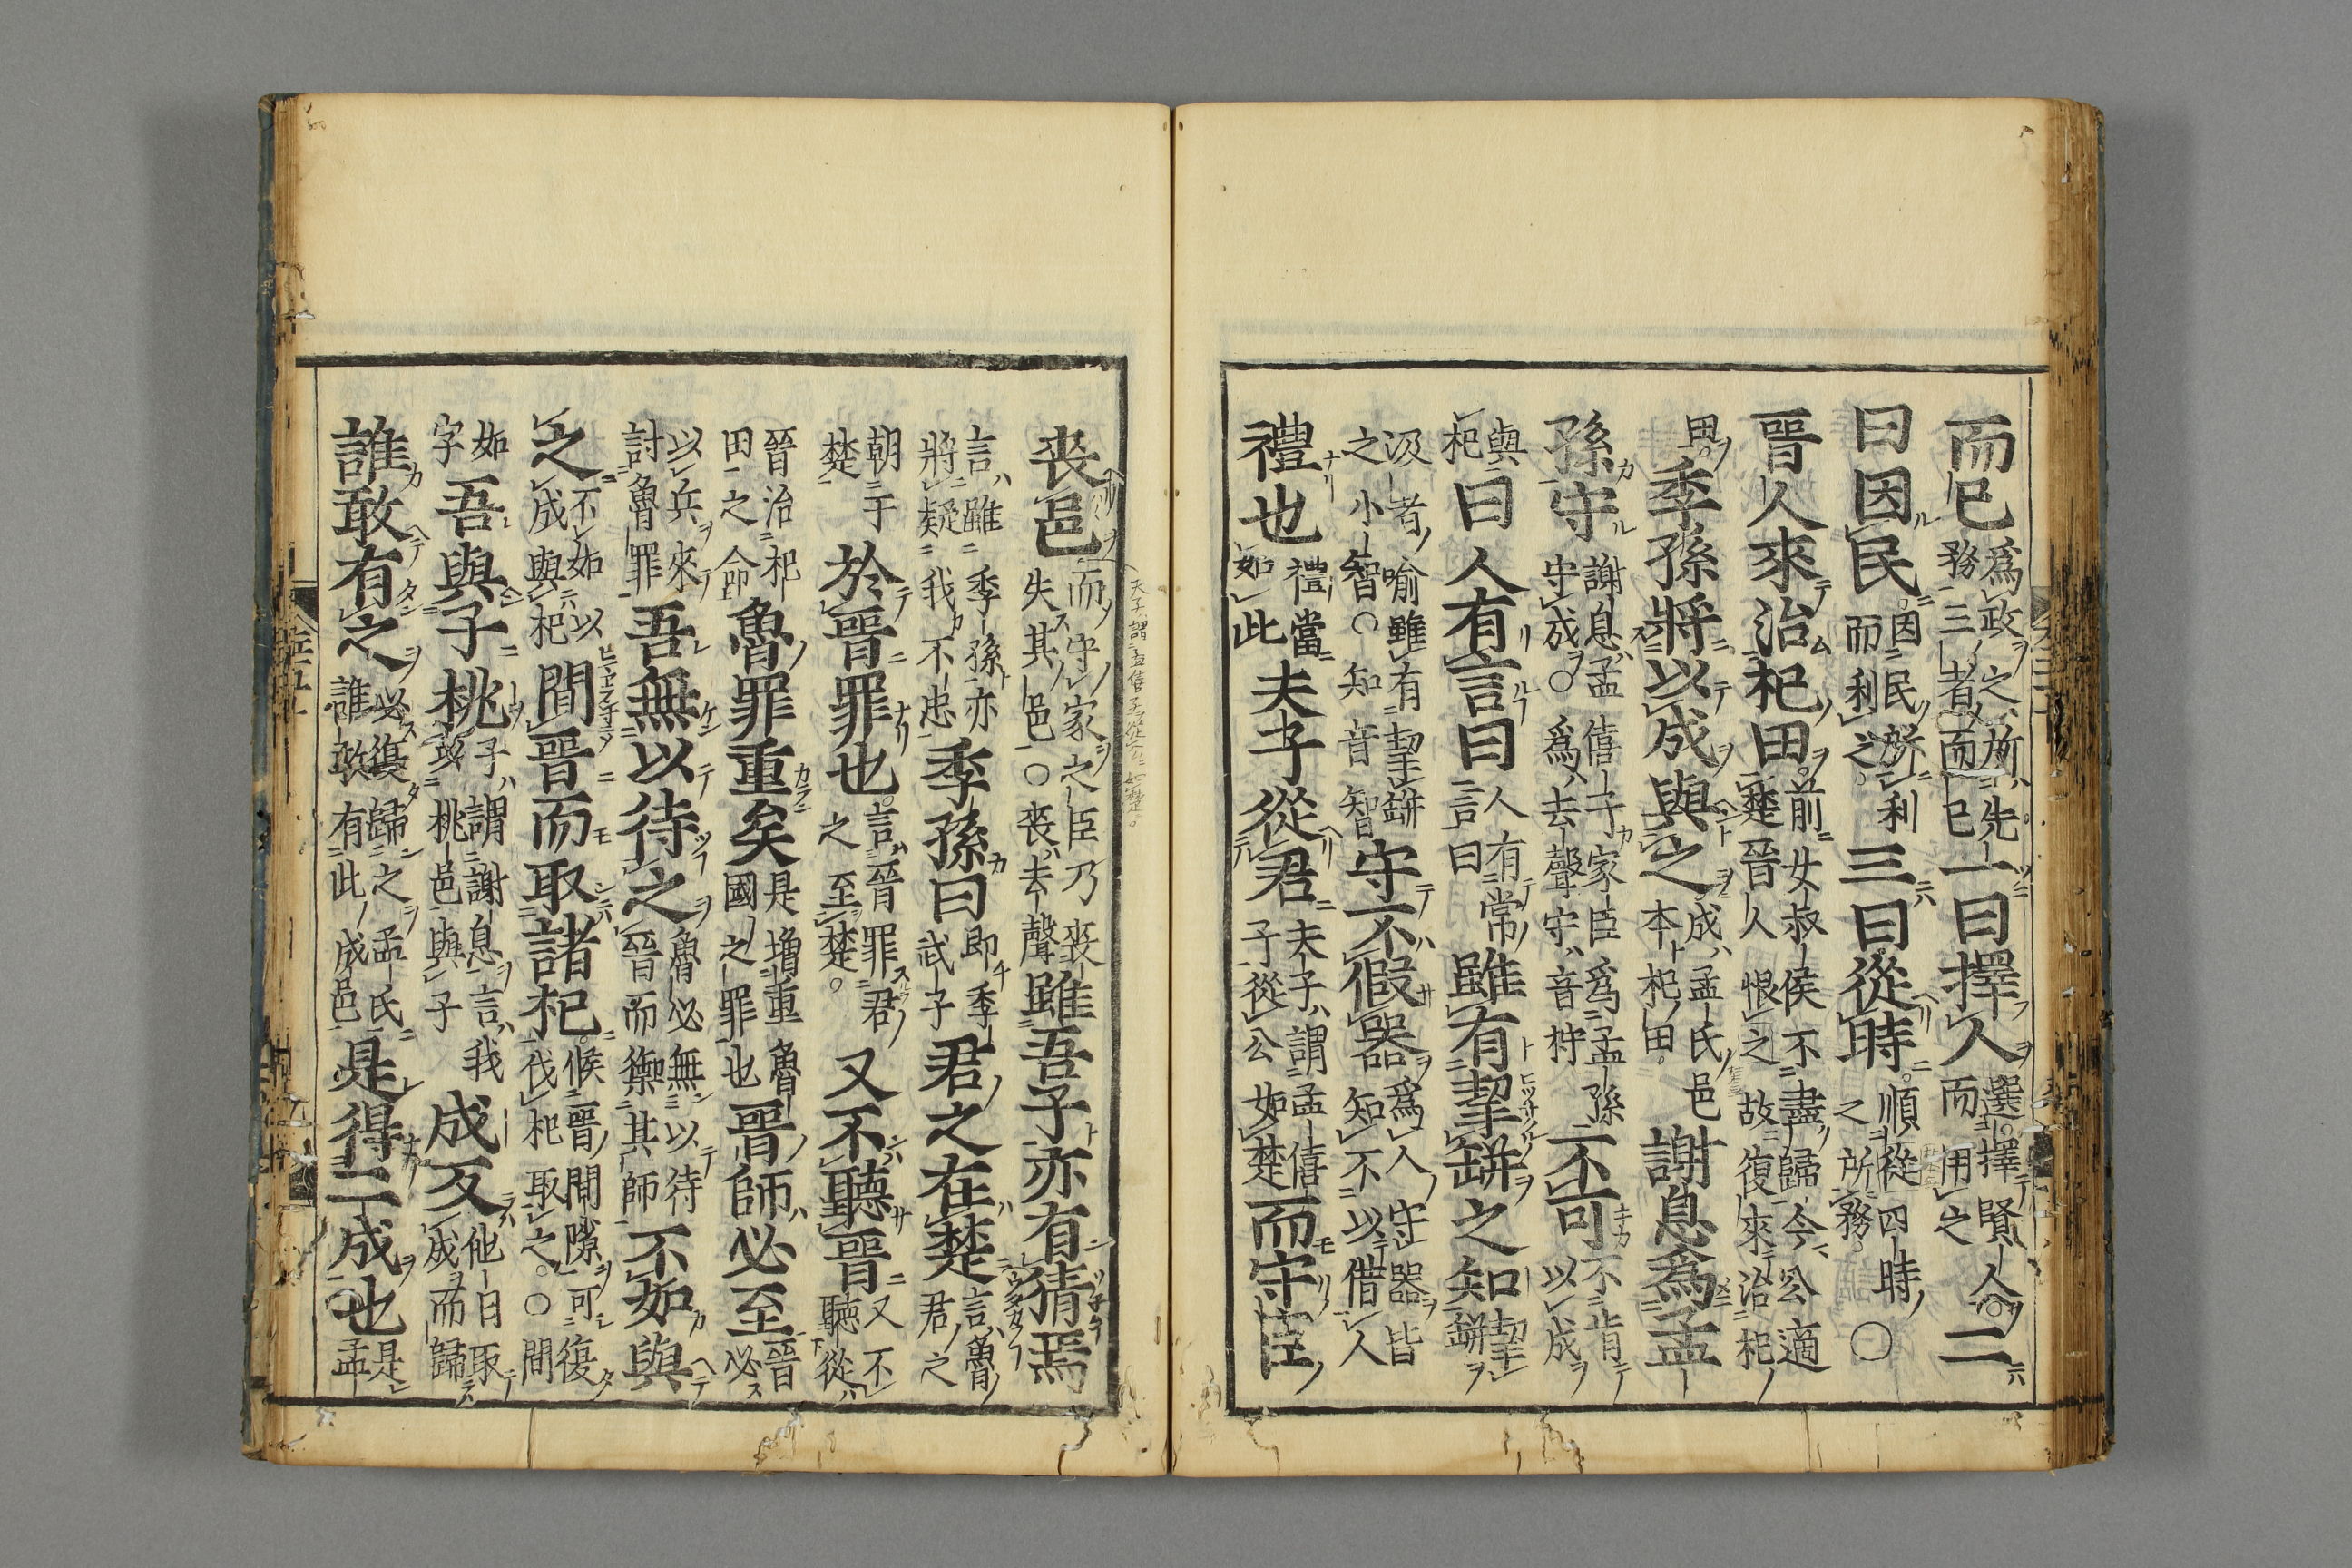 而已爲政之所先務三者而已一曰擇人選擇賢人而用之二
曰因民因民所利而利之三曰從時順從四時之所務○
晉人來治杞田前女叔侯不盡歸今公適楚晉人恨之故復來治杞
田季孫將以成與之成孟氏邑本杞田謝息爲孟
孫守謝息孟僖子家臣爲孟孫守成○爲去聲守音狩不可不肯以成
與杞曰人有言曰人有常言曰雖有挈缾之知挈缾
汲者喻雖有挈缾之小智○知音智守不假器爲人守器皆知不以借人
禮也禮當如此夫子從君夫子謂孟僖子從公如楚而守臣
喪邑而守家之臣乃喪失其邑○喪去聲雖吾子亦有猜焉
言雖季孫亦將疑我不忠季孫曰即季武子君之在楚言魯君之
朝于楚於晉罪也言晉罪君之至楚又不聽晉又不聽從
晉治杞田之命魯罪重矣是增重魯國之罪也晉師必至晉必
以兵來討魯罪吾無以待之魯必無以待晉而禦其師不如與
之不如以成與杞間晉而取諸杞候晉間隙可復伐杞取之○間
如字吾與子桃子謂謝息言我以桃邑與子成反他日取成而歸
誰敢有之必復歸之孟氏誰敢有此成邑是得二成也是孟